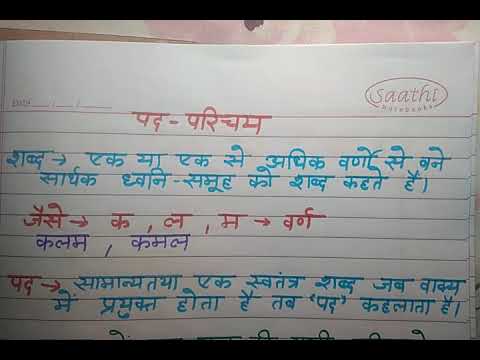 Saathi
notebooks
DATE __/__/__
पद - परिचय
शब्द → एक या एक से अधिक वर्णों से बने
सार्थक ध्वनि-समूह को शब्द कहते हैं।
जैसे → क , ल , म → वर्ण
कलम , कमल
पद → सामान्यतया एक स्वतंत्र शब्द जब वाक्य
में प्रयुक्त होता है तब 'पद' कहलाता है।